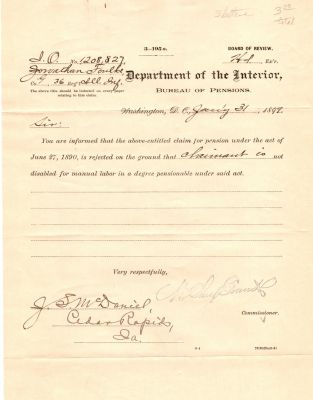 3 00
total
3—195a.
BOARD OF REVIEW.
I.O. No. 1208,827,
Hd. Ex'r.
Jonathan Foulke
36 Reg. Ill. Inf.
The above this should be indorsed on every paper
relating to this claim.
Department of the Interior,
BUREAU OF PENSIONS.
Washington, D. C., Jan'y 31, 1899.
Sir:
You are informed that the above-entitled claim for pension under the act of
June 27, 1890, is rejected on the ground that claimant is not
disabled for manual labor in a degree pensionable under said act.
Very respectfully,
J. S. McDaniel,
Cedar Rapids,
Ia.
Commissioner.